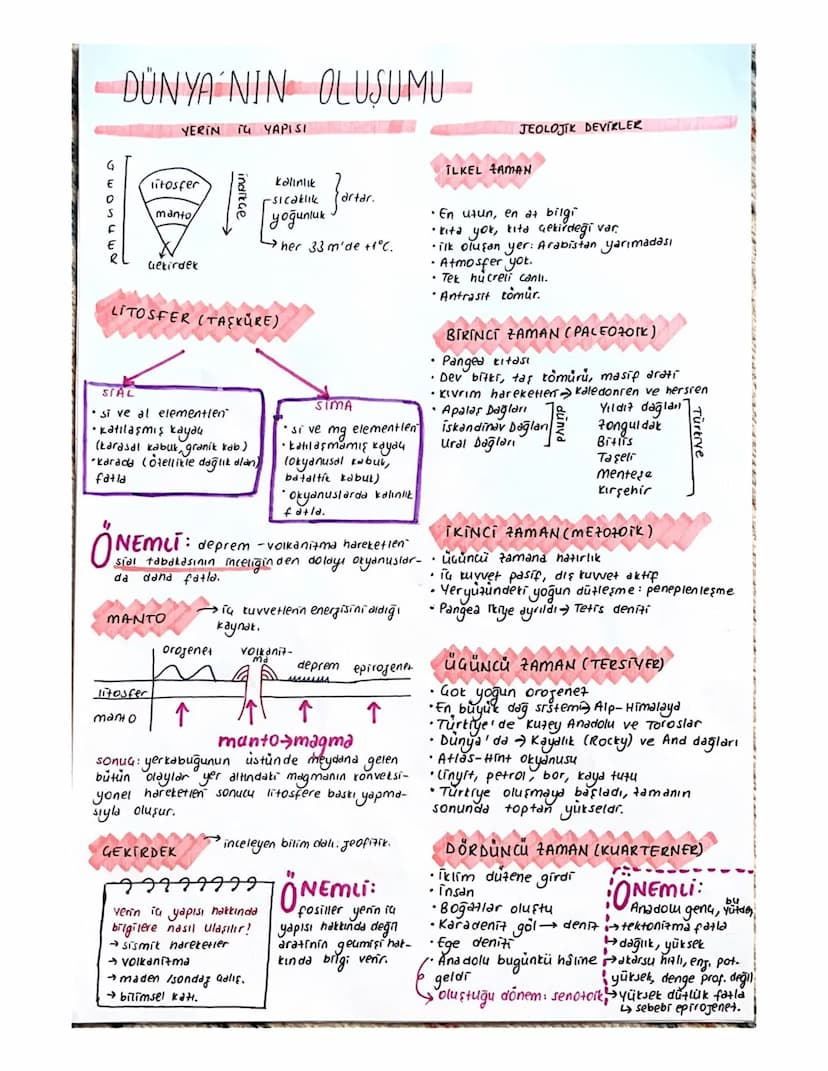 DÜNYA'NIN OLUŞUMU
YERİN İÇ YAPISI
GEOSFER
litosfer
manto
Çekirdek
indikçe
kalınlık
sıcaklık
yoğunluk
artar.
her 33 m'de +1°C.
LİTOSFER (TAŞKÜRE)
SİAL
• si ve al elementleri
• katılaşmış kayaç
(karasal kabuk, granik kab)
• karada (özellikle dağlık alan)
fazla
SİMA
• si ve mg elementleri
• katılaşmamış kayaç
(okyanusal kabuk,
bazaltik kabuk)
• okyanuslarda kalınlık
fazla.
ÖNEMLİ: deprem - volkanizma hareketleri
sial tabakasının inceliğinden dolayı okyanuslar-
da daha fazla.
MANTO
→ iç kuvvetlerin enerjisini aldığı
kaynak.
orojenez
volkaniz-
ma
deprem
epirojenez
litosfer
manto
manto→magma
sonuç: yerkabuğunun üstünde meydana gelen
bütün olaylar yer altındaki magmanın konveksi-
yonel hareketleri sonucu litosfere baskı yapma-
sıyla oluşur.
ÇEKİRDEK
→ inceleyen bilim dalı. jeofizik.
Yerin iç yapısı hakkında
bilgilere nasıl ulaşılır!
→ sismik hareketler
→ volkanizma
→ maden /sondaj çalış.
→ bilimsel kazı.
ÖNEMLİ:
fosiller yerin iç
yapısı hakkında değil
arazinin geçmişi hak-
kında bilgi verir.
JEOLOJİK DEVİRLER
İLKEL ZAMAN
• En uzun, en az bilgi
• kıta yok, kıta çekirdeği var.
• ilk oluşan yer: Arabistan yarımadası
• Atmosfer yok.
• Tek hücreli canlı.
• Antrasit kömür.
BİRİNCİ ZAMAN (PALEOZOİK)
• Pangea kıtası
• Dev bitki, taş kömürü, masif arazi
• kıvrım hareketleri→ kaledonren ve hersiren
• Apalaş Dağları
İskandinav Dağları
Ural Dağları
dünya
Yıldız dağları
Zonguldak
Bitlis
Taşeli
Menteşe
Kırşehir
Türkiye
İKİNCİ ZAMAN (MEZOZOİK)
• Üçüncü zamana hazırlık
• iç kuvvet pasif, dış kuvvet aktif
• Yeryüzündeki yoğun düzleşme: peneplenleşme
• Pangea ikiye ayrıldı→ Tetis denizi
ÜÇÜNCÜ ZAMAN (TERSİYER)
• Çok yoğun orojenez
• En büyük dağ sistemi→ Alp-Himalaya
• Türkiye'de Kuzey Anadolu ve Toroslar
• Dünya'da → Kayalık (Rocky) ve And dağları
• Atlas-Hint okyanusu
• Linyit, petrol, bor, kaya tuzu
• Türkiye oluşmaya başladı, zamanın
sonunda toptan yükseldi.
DÖRDÜNCÜ ZAMAN (KUARTERNER)
• İklim düzene girdi
• İnsan
• Boğazlar oluştu
• Karadeniz göl → deniz
• Ege denizi
• Anadolu bugünkü hâline
geldi
→ oluştuğu dönem: senozoik
ÖNEMLİ:
Anadolu genç, bu yüzden
→ tektonizma fazla
→ dağlık, yüksek
→ akarsu hızlı, enj. pot.
yüksek, denge prof. değil
→ yüksek düzlük fazla
↳ sebebi epirojenez.